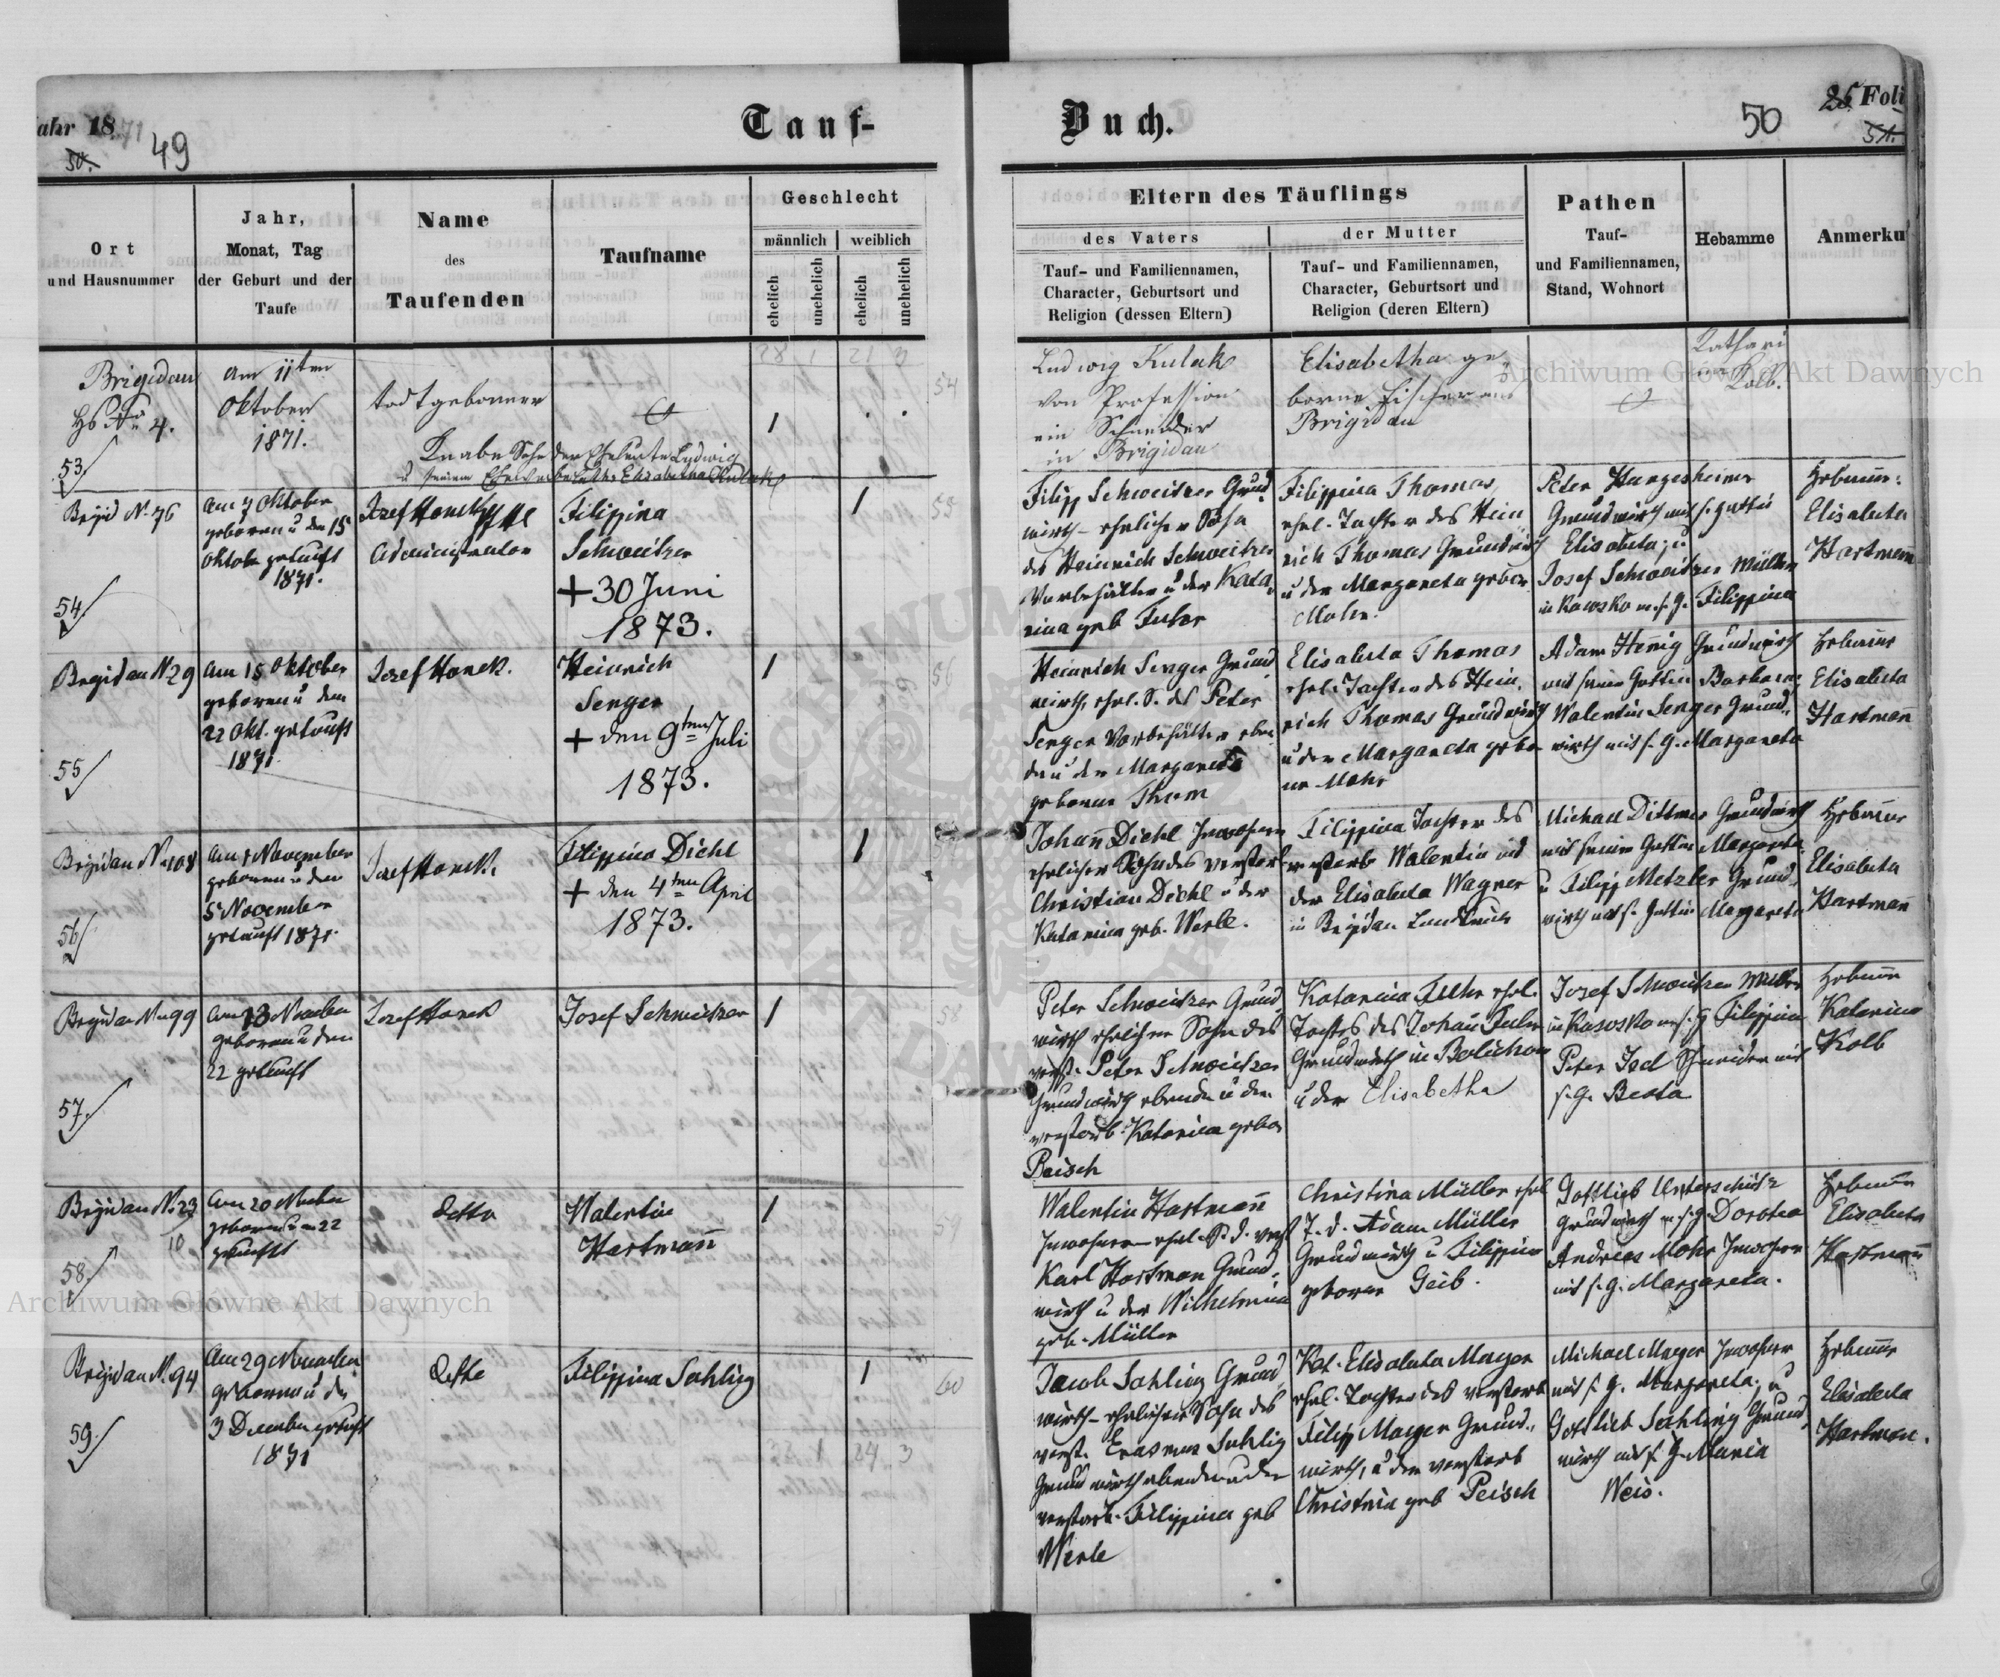 Jahr 1871
50.
49
Tauf-
Buch.
50
26. Foli
51.
Ort
und Hausnummer
Jahr,
Monat, Tag
der Geburt und der
Taufe
Name
des
Taufenden
Taufname
Geschlecht
männlich
weiblich
ehelich
unehelich
ehelich
unehelich
Eltern des Täuflings
des Vaters
Tauf- und Familiennamen,
Character, Geburtsort und
Religion (dessen Eltern)
der Mutter
Tauf- und Familiennamen,
Character, Geburtsort und
Religion (deren Eltern)
Pathen
Tauf-
und Familiennamen,
Stand, Wohnort
Hebamme
Anmerku
28 1 21 3
Brigidau
Hs No 4.
53.
am 11ten
Oktober
1871.
todtgeborner
Knabe Sohn der Eheleute Ludwig
Elisabetha Kulak
1
54
Ludwig Kulak
von Profession
ein Schneider
in Brigidau
Elisabetha ge
borne Fischer aus
Brigidau
Kathari
na Kolb.
Brigid N. 76
54
am 7 Oktober
geboren u den 15
Oktob getauft
1871.
Josef Honek
Administrator
Filippina
Schweitzer
+ 30 Juni
1873.
1
55
Filipp Schweitzer Grund
wirth - ehelicher Sohn
des Heinrich Schweitzer
Vorbehälter u der Kata
rina geb
Filippina Thomas,
ehel. Tochter des Hein
rich Thomas Grundwirth
u der Margareta gebor
Mohr.
Peter Hargesheimer
Grundwirth mit s. Gattin
Elisabeta; u
Josef Schweitzer Müller
in m. s. g. Filippina
Hebamme:
Elisabeta
Hartmann
Brigidau N 29
55
am 15 Oktober
geboren u den
22 Okt. getauft
1871
Josef Honek.
Heinrich
Senger
+ den 9ten Juli
1873.
1
56
Heinrich Senger Grund
wirth, ehel. S. des Peter
Senger Vorbehälter eben
da u der Margareta
geborne Thom
Elisabeta Thomas
ehel. Tochter des Hein,
rich Thomas Grundwirth
u der Margareta gebor
ne Mohr
Adam Hennig Grundwirth
mit seiner Gattin Barbara
Walentin Senger Grund,
wirth mit s. g. Margareta
Hebamme
Elisabeta
Hartmann
Brigidau N 108
56
am 1 November
geboren u den
5 November
getauft 1871.
Josef Honek.
Filippina Diehl
+ den 4ten April
1873.
1
Johann Diehl Inwohner
ehelicher Sohn des verstorb
Christian Diehl u der
Katarina geb. Werle.
Filippina Tochter des
verstorb Walentin und
der Elisabeta Wagner
in Brigidau
Michael Dittmer Grundwirth
mit seiner Gattin Margareta
u Filipp Metzler Grund,
wirth mit s. Gattin Margareta
Hebamme
Elisabeta
Hartman
Brigidau N 99
57.
am 13 November
geboren u den
22 getauft
Josef Honek
Josef Schweitzer
1
58
Peter Schweitzer Grund
wirth ehelicher Sohn des
verst. Peter Schweitzer
Grundwirth ebenda u der
verstorb. Katarina gebor
Peisch
Katarina Fuhr ehel.
Tochter des Johann Fuhr
Grundwirth in Bolichow
u der Elisabetha
Josef Schweitzer Müller
in m. s. g. Filippina
Peter Jod Schneider mit
s. g. Beata
Hebamme
Katarina
Kolb
Brigidau N. 23
10
58.
am 20 November
geboren u den 22
getauft
Detto
Walentin
Hartmann
1
59
Walentin Hartmann
Inwohner ehel. S. d. verst
Karl Hartman Grund,
wirth u der Wilhelmina
geb. Müller
Christina Müller ehel
T. d. Adam Müller
Grundwirth u Filippina
geborne Geib.
Gottlieb Unterschütz
Grundwirth m. s. g. Dorotea
Andreas Mohr Inwohner
mit s. g. Margareta.
Hebamme
Elisabeta
Hartmann
Brigidau N. 94
59.
Am 29 November
geboren u den
3 December getauft
1871
Detto
Filippina Sahling
1
60
24 3
Jacob Sahling Grund,
wirth - ehelicher Sohn des
verst. Erasmus Sahling
Grundwirth ebenda u der
verstorb. Filippina geb
Werle
Kat. Elisabeta Mayer
ehel. Tochter des verstorb
Filipp Mayer Grund,
wirth, u der verstorb
Christina geb Peisch
Michael Mayer Inwohner
mit s. g. Margareta; u
Gottlieb Sahling Grund,
wirth mit s. g. Maria
Weis.
Hebamme
Elisabeta
Hartman.
Archiwum Główne Akt Dawnych
Archiwum Główne Akt Dawnych